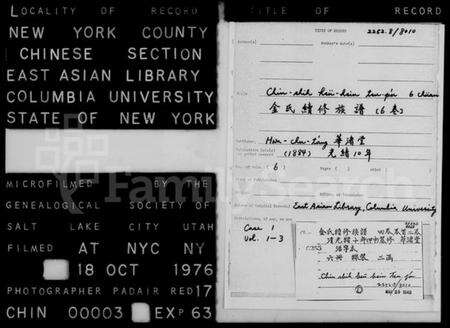 LOCALITY OF RECORD
NEW YORK COUNTY
CHINESE SECTION
EAST ASIAN LIBRARY
COLUMBIA UNIVERSITY
STATE OF NEW YORK
MICROFILMED BY THE
GENEALOGICAL SOCIETY OF
SALT LAKE CITY UTAH
FILMED AT NYC NY
18 OCT 1976
PHOTOGRAPHER PADAIR RED 17
CHIN 00003 EXP 63
TITLE OF RECORD
TITLE OF RECORD
2252.8/8010
Chin-shih hsü-hsiu tsu-p'u 6 chüan
金氏續修族譜 (6卷)
Hua-chu-t'ang 華渚堂
(1884) 光緒10年
(6)
East Asian Library, Columbia University
Case 1
Vol. 1-3
金氏續修族譜
清光緒十年
華渚堂
六冊 二函
Chin shih hsü hsiu